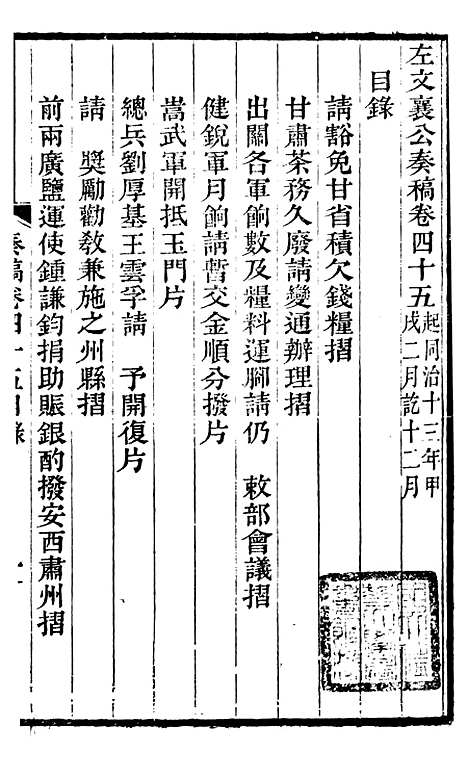 左文襄公奏稿卷四十五起同治十三年甲戌二月訖十二月
目錄
請豁免甘省積欠錢糧摺
甘肅茶務久廢請變通辦理摺
出關各軍餉數及糧料運腳請仍 敕部會議摺
健銳軍月餉請暫交金順分撥片
嵩武軍開抵玉門片
總兵劉厚基王雲孚請 予開復片
請 奬勵勸教兼施之州縣摺
前兩廣鹽運使鍾謙鈞捐助賑銀酌撥安西肅州摺
奏稿卷四十五目錄
一